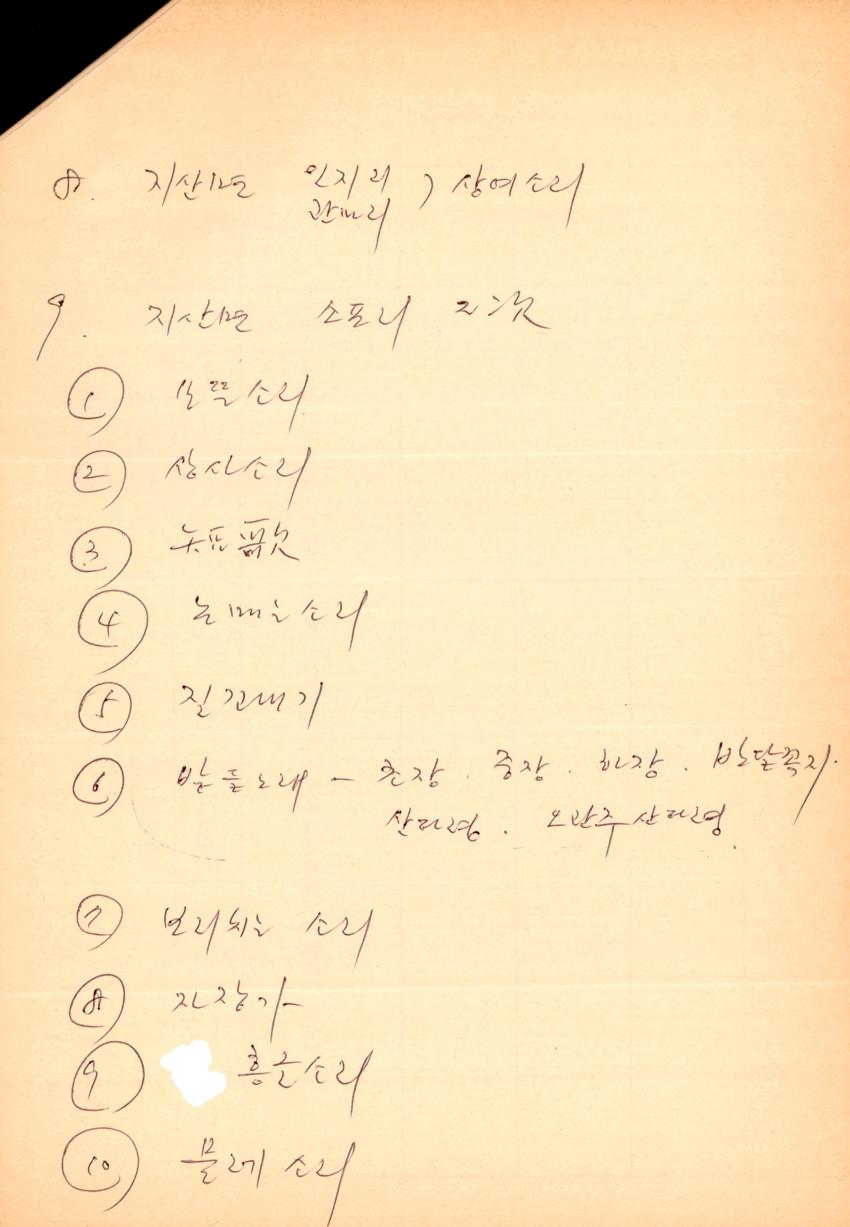 8. 지산면 인지리
관마리 ) 상여소리
9. 지산면 소포리 2次
① 모뜰소리
② 상사소리
④ 논매는소리
⑤ 질꼬내기
⑥ 밭들노래 - 초장. 중장. 하장. 반달꼭지.
산타령. 오관주산타령.
⑦ 보리치는 소리
⑧ 자장가
⑨ 흥글소리
⑩ 물레소리